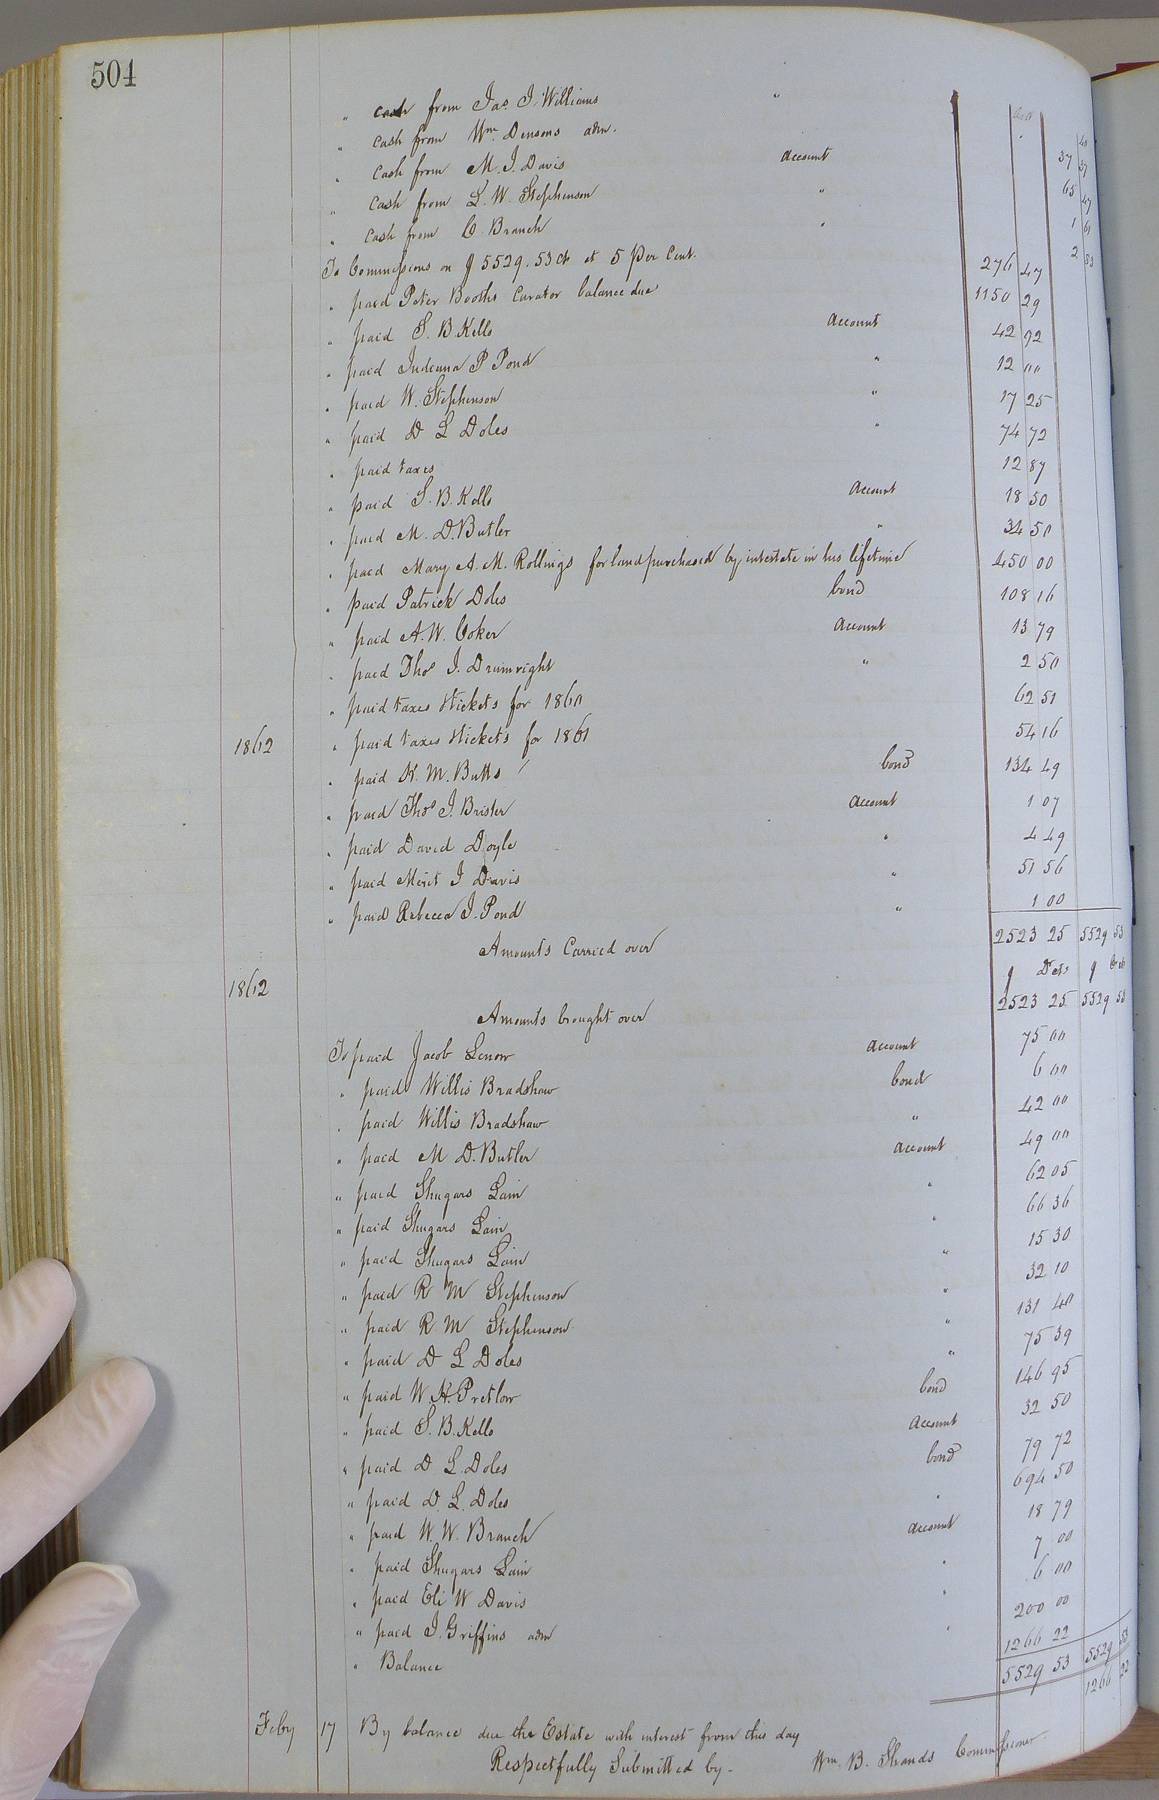 504
" cash from Jas. J. Williams "
" cash from Wm. Densons adm. 37 37
" cash from M. J. Davis Account 65 47
" cash from L. W. Stephenson " 1 61
" cash from C. Branch " 2 53
To Commissions on $5529.53 cts at 5 per Cent. 276 47
" paid Peter Booths Curator balance due 1150 29
" paid S. B. Kello Account 42 92
" paid Indeana P Pond " 12 00
" paid W. Stephenson " 17 25
" paid D L Doles " 74 72
" paid taxes 12 87
" paid S. B. Kello Account 18 50
" paid M. D. Butler " 34 50
" paid Mary A. M. Rollings for land purchased by intestate in his lifetime 450 00
" paid Patrick Doles bond 108 16
" paid A. W. Coker Account 13 79
" paid Thos J. Drumwright " 2 50
" paid taxes tickets for 1860 62 51
1862 " paid taxes tickets for 1861 54 16
" paid H. M. Butts bond 134 49
" paid Thos J. Brister Account 1 07
" paid David Doyle " 4 49
" paid Merit J Davis " 51 56
" paid Rebecca J. Pond " 1 00
Amounts Carried over 2523 25 5529 53
1862 $ Dcts $ Cr cts
Amounts brought over 2523 25 5529 53
To paid Jacob Lenow Account 75 00
" paid Willis Bradshaw bond 6 00
" paid Willis Bradshaw " 42 00
" paid M D. Butler Account 49 00
" paid Shugars Lain " 62 05
" paid Shugars Lain " 66 36
" paid Shugars Lain " 15 30
" paid R M Stephenson " 32 10
" paid R M Stephenson " 131 40
" paid D L Doles " 75 39
" paid W. H. Pretlow bond 146 95
" paid S. B. Kello Account 32 50
" paid D L. Doles bond 79 72
" paid D. L. Doles " 694 50
" paid W. W. Branch Account 18 79
" paid Shugars Lain " 7 00
" paid Eli W Davis " 6 00
" paid J. Griffins adm " 200 00
" Balance 1266 22
5529 53 5529 53
Feby 17 By balance due the Estate with interest from this day 1266 22
Respectfully Submitted by - Wm. B. Shands Commissioner.